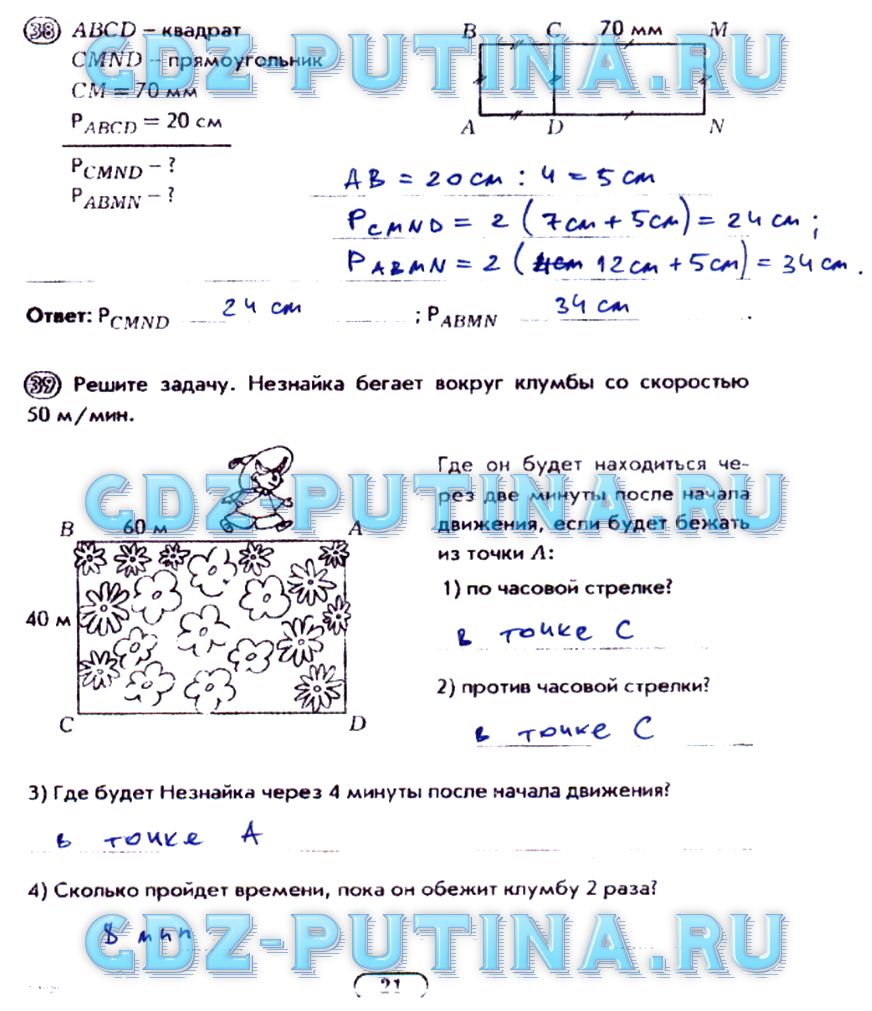 38 ABCD – квадрат
CMND – прямоугольник
CM = 70 мм
P ABCD = 20 см
P CMND – ?
P ABMN – ?
B C 70 мм M
A D N
AB = 20 см : 4 = 5 см
P CMND = 2 (7 см + 5 см) = 24 см ;
P ABMN = 2 (12 см + 5 см) = 34 см .
Ответ: P CMND 24 см ; P ABMN 34 см .
39 Решите задачу. Незнайка бегает вокруг клумбы со скоростью
50 м/мин.
B 60 м A
40 м
C D
Где он будет находиться че-
рез две минуты после начала
движения, если будет бежать
из точки A:
1) по часовой стрелке?
в точке C
2) против часовой стрелки?
в точке C
3) Где будет Незнайка через 4 минуты после начала движения?
в точке A
4) Сколько пройдет времени, пока он обежит клумбу 2 раза?
8 мин
21
GDZ-PUTINA.RU
GDZ-PUTINA.RU
GDZ-PUTINA.RU